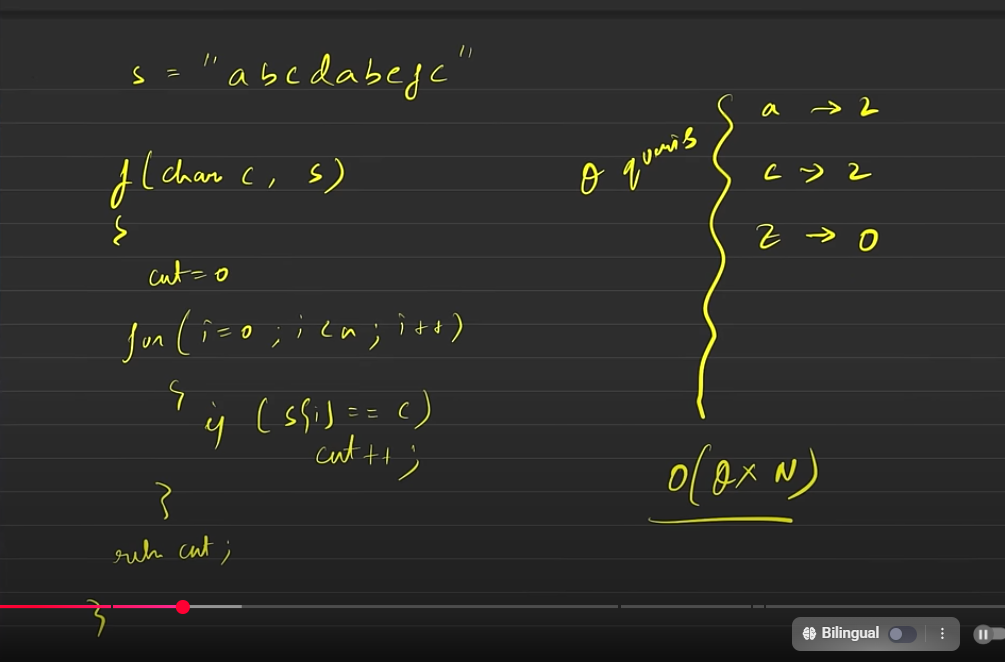 s = "abcdabefc"
f(char c, s)
{
cnt = 0
for(i=0; i<n; i++)
{
if (s[i] == c)
cnt++;
}
return cnt;
}
Q queries
a → 2
c → 2
z → 0
O(Q × N)
Bilingual